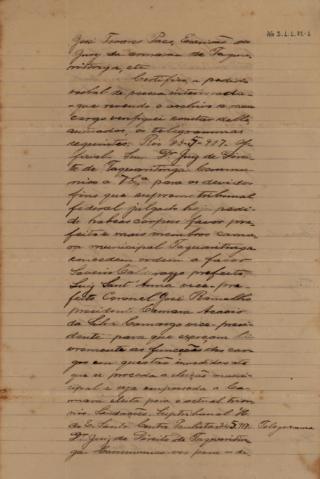 José Tavares Paes, Escrivão do
Juiz da comarca de Taqua-
ritinga, etc.
Certifico, a pedido
verbal de pessoa interessada
que revendo o archivo a meu
cargo verifiquei constar delle,
os telegrammas
seguintes: Rio
Snr. Dr. Juiz de Direi-
to de Taquaritinga. Commu-
nico a V. S.ª para os devidos
fins que supremo tribunal
federal julgando pedi-
do habeas corpus favor pre-
feito e mais membros cama-
ra municipal Taquaritinga
concedeu ordem a favor
prefeito,
Luiz Sant'Anna vice-pre-
feito Coronel José Ramalho
presidente Camara Acacio
da Silva Camargo vice-presi-
dente para que exerçam li-
vremente as funcções dos car-
gos em questão
que se proceda a eleição muni-
cipal e seja empossada a Ca-
mara eleita para o actual trien-
nio. Saudações.
Telegramma
Dr. Juiz de Direito de Taquaritin-
ga. Communico vos para o de-